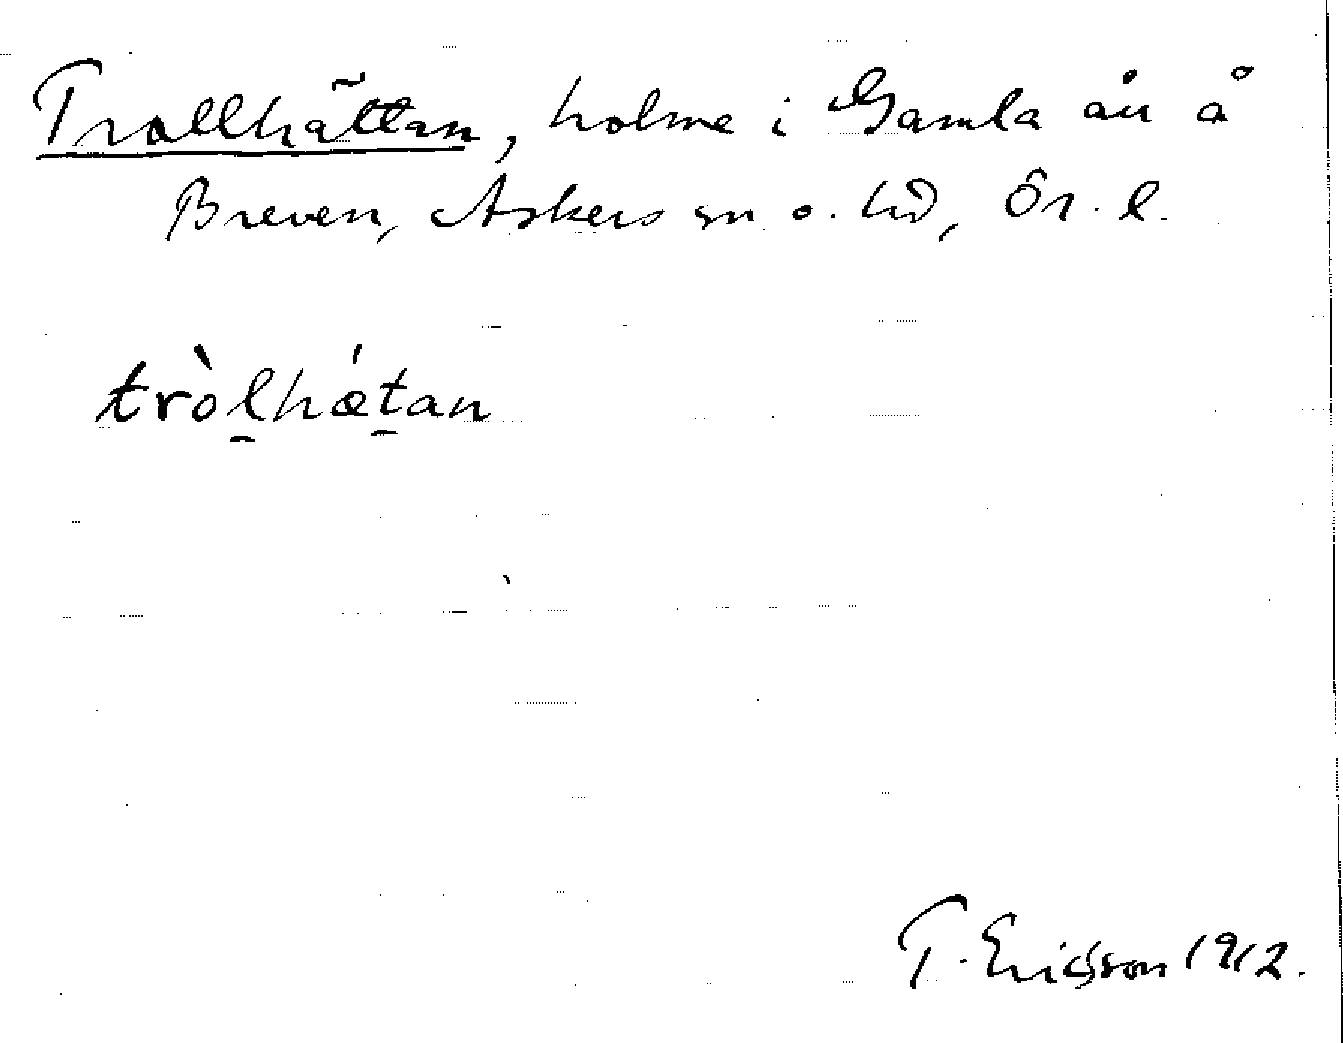 Trollhättan, holme i Gamla ån å
Breven, Askers sn o. hd, Ör. l.
tròlhǽtan
T. Ericsson 1912.